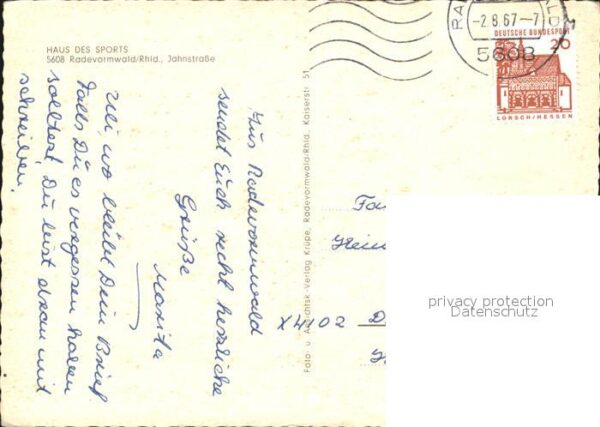 HAUS DES SPORTS
5608 Radevormwald/Rhld., Jahnstraße
-2.8.67-7
5608
DEUTSCHE BUNDESPOST
20
LORSCH/HESSEN
Aus Radevormwald
sendet Euch recht herzliche
Grüße
Marita
Uli, wo bleibt Dein Brief
Falls Du es vergessen haben
solltest, Du bist dran mit
schreiben.
Foto u. Ansichtsk.-Verlag Krupe, Radevormwald/Rhld., Kaiserstr. 51
Fa
Hein
X4102
privacy protection
Datenschutz